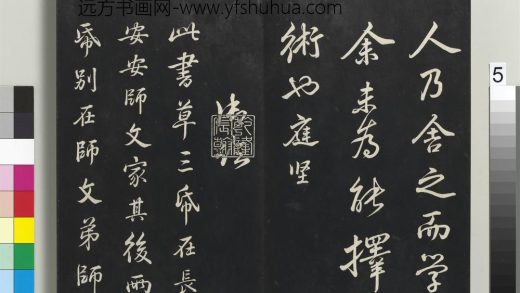 远方书画网-www.yfshuhua.com
5
人乃舍之而学
余未为能擇
術也庭坚
此書草三帋在長
安安師文家其後兩
帋别在師文弟師